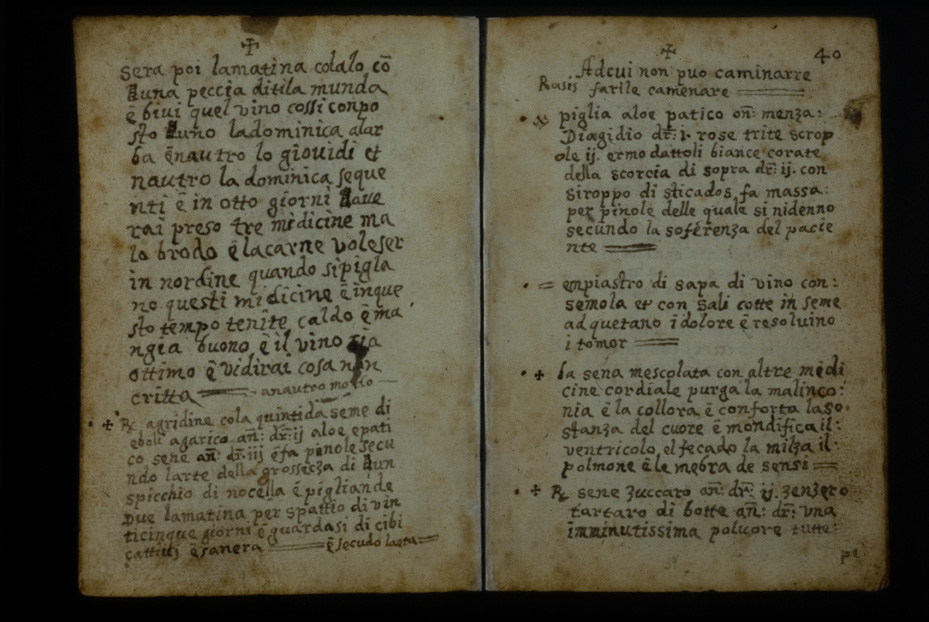 sera poi lamatina colalo cō
una peccia ditila munda
ē biui quel vino cossi conpo
sto uno ladominica alar
ba ē nautro lo giouidi et
nautro la dominica seque
nti ē in otto giorni aue
rai preso tre midicine ma
lo brodo ē lacarne voleser
in nordine quando sipigla
no questi midicine ē inque
sto tempo tenite caldo ē ma
ngia buono ē il vino sia
ottimo ē vidirai cosa non
critta anautro modo
✠ ℞ agridine cola quintida seme di
eboli agarico añ: dr: ij aloe epati
co sene añ: dr: iij ē fa pinole secu
ndo larte della grossezza di un
spicchio di nocella ē pigliande
Due lamatina per spattio di vin
ticinque giorni ē guardasi di cibi
cattiuj ē sanera ē secudo laeta
40
Adcui non puo caminarre
Rasis farile camenare
piglia aloe patico oñ: menza:
Diagidio dr: i. rose trite scrop
ole ij. ermodattoli biance corate
della scorcia di sopra dr: ij. con
siroppo di sticados fa massa:
per pinole delle quale si nidenno
secundo la soferenza del pacie
nte
empiastro di sapa di vino con:
semola et con sali cotte in seme
ad quetano i dolore ē resoluino
i tomor
✠ la sena mescolata con altre medi
cine cordiale purga la malinco:
nia ē la collora ē conforta laso
stanza del cuore ē mondifica il:
ventricolo, el fecado la milza il:
polmone ē le mebra de sensi
✠ ℞ sene zuccaro añ: dr: ij. zenzero
tartaro di botte añ: dr: vna
imminutissima poluore tutte:
pe